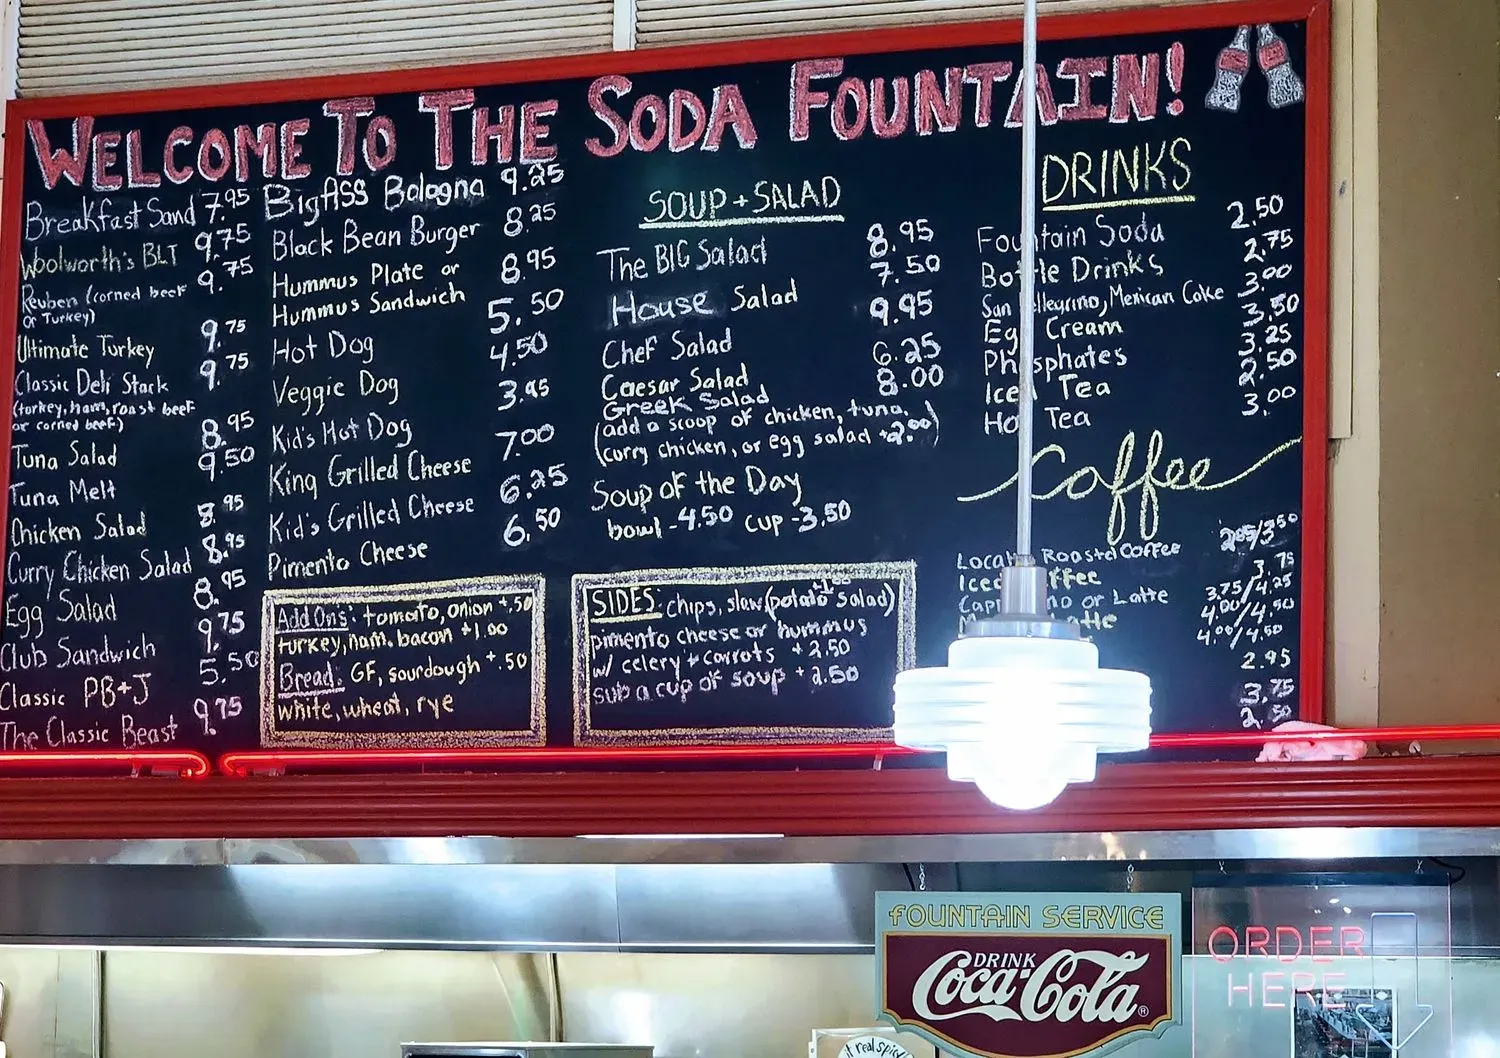 WELCOME TO THE SODA FOUNTAIN!
Breakfast Sand 7.95
Woolworth's BLT 9.75
Reuben (corned beef 9.75
or Turkey)
Ultimate Turkey 9.75
Classic Deli Stack 9.75
(turkey, ham, roast beef
or corned beef)
Tuna Salad 8.95
Tuna Melt 9.50
Chicken Salad 8.95
Curry Chicken Salad 8.95
Egg Salad 8.95
Club Sandwich 9.75
Classic PB+J 5.50
The Classic Beast 9.75
BigASS Bologna 9.25
Black Bean Burger 8.25
Hummus Plate or 8.95
Hummus Sandwich
Hot Dog 5.50
Veggie Dog 4.50
Kid's Hot Dog 3.95
King Grilled Cheese 7.00
Kid's Grilled Cheese 6.25
Pimento Cheese 6.50
Add Ons: tomato, onion +.50
turkey, ham, bacon +1.00
Bread: GF, sourdough +.50
white, wheat, rye
SOUP + SALAD
The BIG Salad 8.95
House Salad 7.50
Chef Salad 9.95
Caesar Salad 6.25
Greek Salad 8.00
(add a scoop of chicken, tuna,
curry chicken, or egg salad +2.00)
Soup of the Day
bowl - 4.50 cup - 3.50
SIDES: chips, slaw (potato salad)
pimento cheese or hummus
w/ celery + carrots +2.50
sub a cup of soup +2.50
DRINKS
Fountain Soda 2.50
Bottle Drinks 2.75
San Pellegrino, Mexican Coke 3.00
Egg Cream 3.50
Phosphates 3.25
Iced Tea 2.50
Hot Tea 3.00
Coffee
Local Roasted Coffee /3.50
Iced Coffee 3.75
Cappuccino or Latte 3.75/4.25
Latte 4.00/4.50
4.00/4.50
2.95
3.75
2.50
FOUNTAIN SERVICE
DRINK
Coca-Cola®
ORDER
HERE
it real spicy